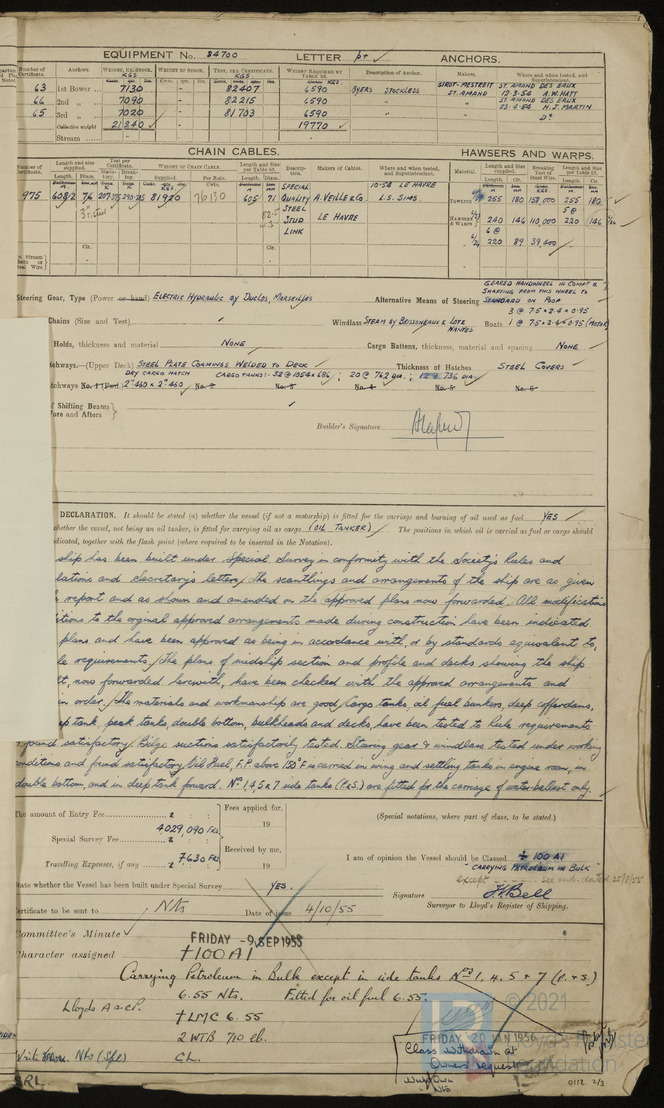 EQUIPMENT No. 84700 LETTER pt ANCHORS.
Number of Certificate. Anchors WEIGHT, EX. STOCK. WEIGHT OF STOCK. TEST, PER CERTIFICATE. WEIGHT REQUIRED BY TABLE 53. Description of Anchor. Makers. Where and when tested, and Superintendent.
63 1st Bower 7130 - 82407 6590 BYERS STOCKLESS BIROT-MESTREIT ST. AMAND ST. AMAND DES EAUX 12-3-54 A.W. HATT
66 2nd " 7090 - 82215 6590 " ST. AMAND DES EAUX
65 3rd " 7020 - 81703 6590 " 23-4-54 H.J. MARTIN
Collective weight 21240 19770 Do
Stream
CHAIN CABLES. HAWSERS AND WARPS.
Length and size supplied. Test per Certificate. WEIGHT OF CHAIN CABLE. Length and Size per Table 53. Description. Makers of Cables. Where and when tested, and Superintendent. Material. Length and Size supplied. Breaking Test of Steel Wire. Length and Size per Table 53.
975 608.2 76 81920 76130 605 71 SPECIAL QUALITY STEEL STUD LINK A. VEILLE & Co. LE HAVRE 10-54 LE HAVRE L.S. SIMS.
TOWLINE 255 180 158,000 255 180
HAWSERS & WARPS 240 146 110,000 220 146
6 @
220 89 39,400
Steering Gear, Type (Power or hand) ELECTRIC HYDRAULIC BY DUCLOS, MARSEILLES Alternative Means of Steering GEARED HANDWHEEL IN COMPT & SHAFTING FROM THIS WHEEL TO STANDARD ON POOP
Chains (Size and Test) Windlass STEAM BY BRISSONEAUX & LOTZ NANTES Boats 3 @ 7.5 × 2.4 × 0.95
1 @ 7.5 × 2.4 × 0.95 (MOTOR)
Holds, thickness and material NONE Cargo Battens, thickness, material and spacing NONE
tchways.—(Upper Deck) STEEL PLATE COAMINGS WELDED TO DECK Thickness of Hatches STEEL COVERS
DRY CARGO HATCH CARGO TANKS:- 32 @ 1054 × 686; 20 @ 762 DIA.; 12 @ 736 DIA.
tchways No. 1 (Fwd) 2"460 × 2"460 No. 2 No. 3 No. 4 No. 5 No. 6
f Shifting Beams
ore and Afters
Builder's Signature
DECLARATION. It should be stated (a) whether the vessel (if not a motorship) is fitted for the carriage and burning of oil used as fuel YES
whether the vessel, not being an oil tanker, is fitted for carrying oil as cargo (OIL TANKER) The positions in which oil is carried as fuel or cargo should
dicated, together with the flash point (where required to be inserted in the Notation).
ship has been built under Special Survey in conformity with the Society's Rules and
lations and Secretary's letters, the scantlings and arrangements of the ship are as given
report and as shown and amended on the approved plans now forwarded. All modifications
itions to the original approved arrangements made during construction have been indicated
plans and have been approved as being in accordance with, or by standards equivalent to,
le requirements. The plans of midship section and profile and decks showing the ship
lt, now forwarded herewith, have been checked with the approved arrangements and
in order. The materials and workmanship are good. Cargo tanks, oil fuel bunkers, deep cofferdams,
ep tank, peak tanks, double bottom, bulkheads and decks, have been tested to Rule requirements
found satisfactory. Bilge suctions satisfactorily tested. Steering gear & windlass tested under working
conditions and found satisfactory. Oil Fuel, F.P. above 150°F is carried in wing and settling tanks in engine room, in
double bottom, and in deep tank forward. Nos 1, 4, 5 & 7 side tanks (P.&S.) are fitted for the carriage of water ballast only.
The amount of Entry Fee Fees applied for,
4,029,090 FRS. 19
Special Survey Fee Received by me,
Travelling Expenses, if any 7630 FRS 19
(Special notations, where part of class, to be stated.)
I am of opinion the Vessel should be Classed + 100 A1
"CARRYING PETROLEUM IN BULK"
except
State whether the Vessel has been built under Special Survey YES. Signature J. Bell
Surveyor to Lloyd's Register of Shipping.
Certificate to be sent to Nts Date of issue 4/10/55
Committee's Minute FRIDAY - 9 SEP 1955
Character assigned +100A1
Carrying Petroleum in Bulk except in side tanks Nos 1, 4, 5 & 7 (P. & S.)
6.55 Nts. Fitted for oil fuel 6.55.
Lloyds A & CP.
+LMC 6.55
2 WTB 710 lb.
CL.
Nts (Spl)
FRIDAY 20 JAN 1956
Class withdrawn at
Owners request
© 2021
Lloyd's Register Foundation
0112 2/3
SRL